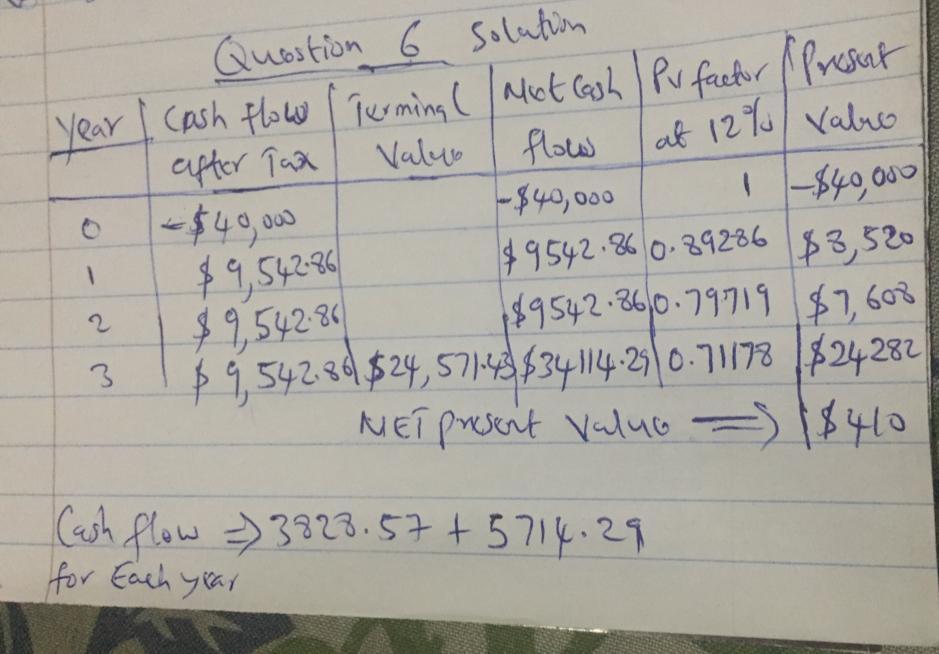 Question 6 Solution
Year | Cash flow after Tax | Terminal Value | Net Cash flow | Pv factor at 12% | Present Value
0 | -$40,000 | | -$40,000 | 1 | -$40,000
1 | $9,542.86 | | $9542.86 | 0.89286 | $8,520
2 | $9,542.86 | | $9542.86 | 0.79719 | $7,608
3 | $9,542.86 | $24,571.43 | $34114.29 | 0.71178 | $24282
NET present Value ⇒ | $410
Cash flow ⇒ 3828.57 + 5714.29
for Each year